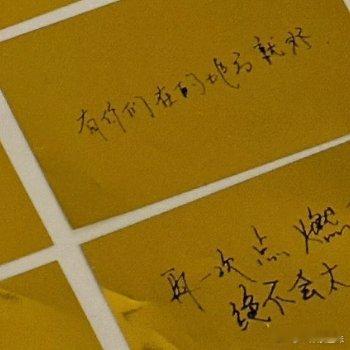 有你们在的地方就好.
再一次点燃
绝不会太